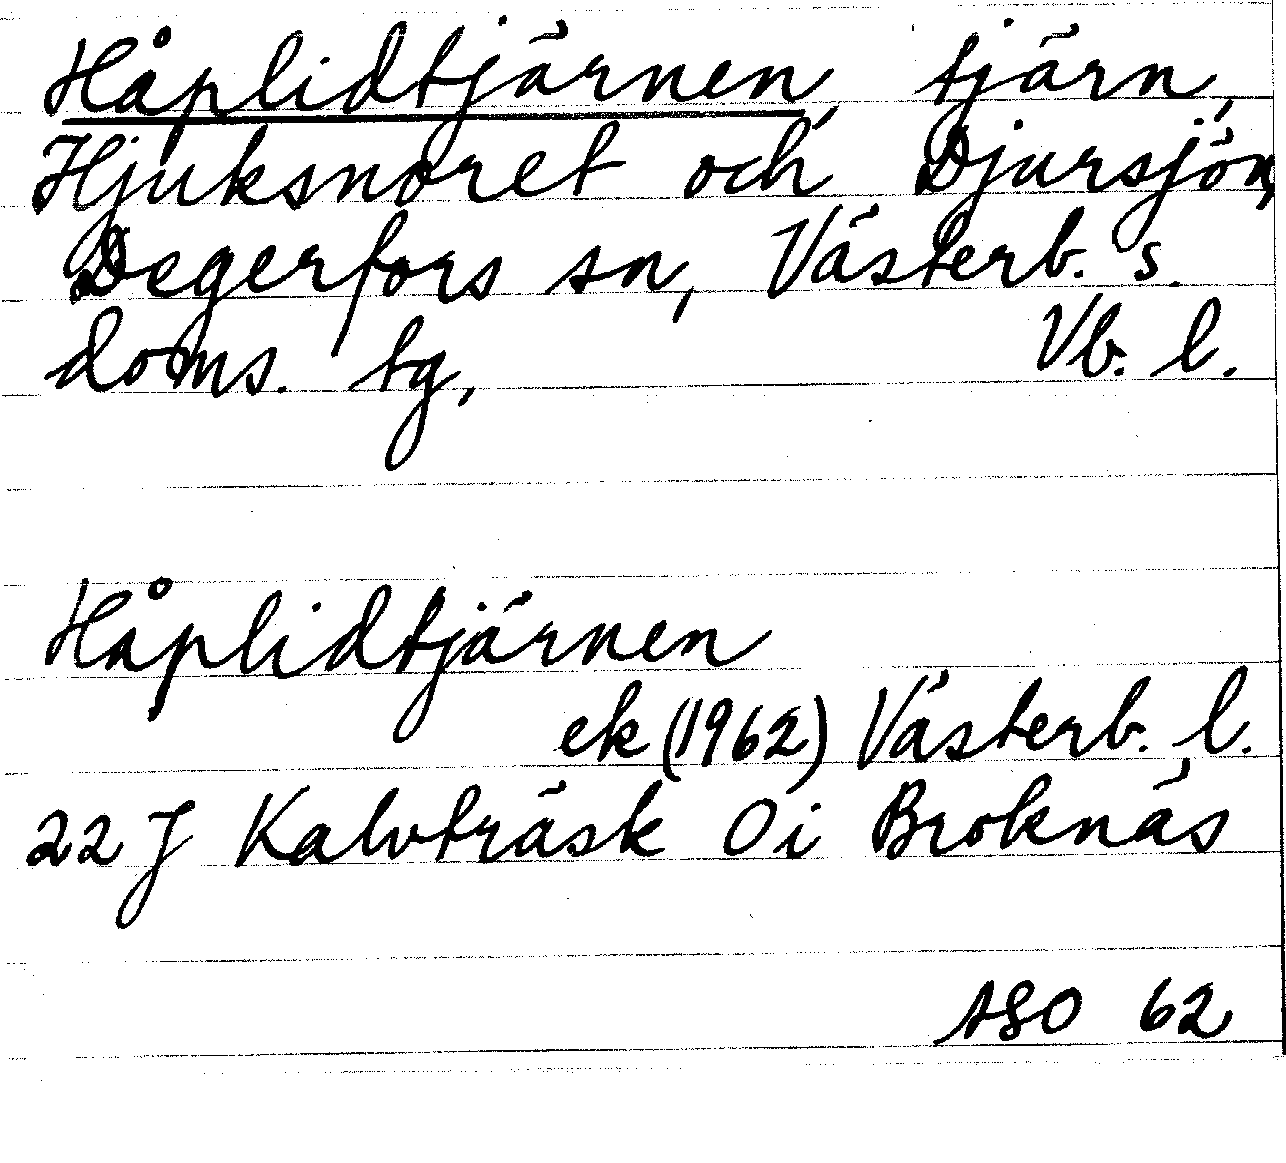 Håplidtjärnen, tjärn,
Hjuksnoret och Djursjön,
Degerfors sn, Västerb. s.
doms. tg, Vb. l.
Håplidtjärnen
ek (1962) Västerb. l.
22 J Kalvträsk 0i Broknäs
ASO 62